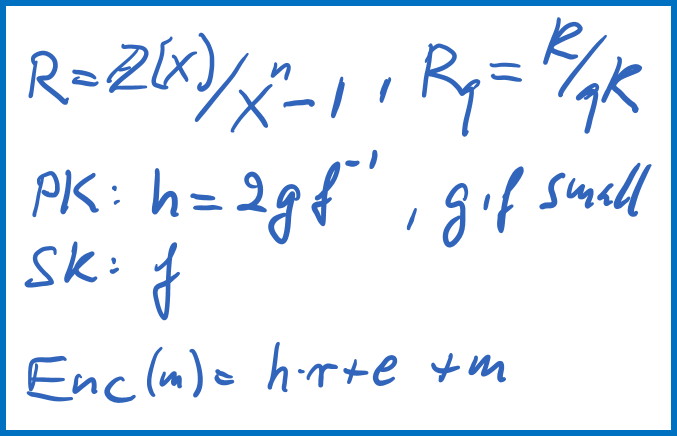 R = Z(X)/X^n - 1 , R_q = R/qR
PK: h = 2gf^-1 , g, f small
SK: f
Enc(m) = h·r + e + m